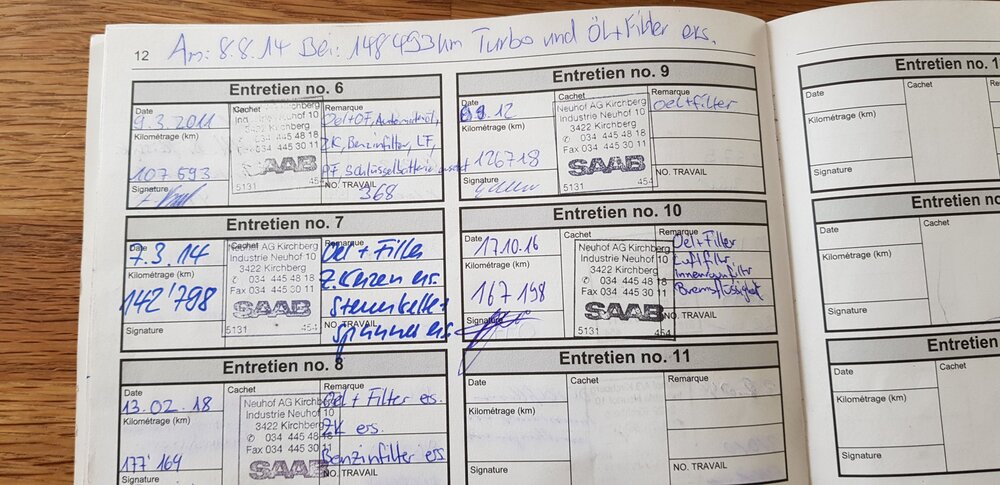 12 Am: 8.8.14 Bei: 148'493 km Turbo und Öl+Filter ers.
Entretien no. 6
Date
Cachet
Remarque
9.3.2011
Kilométrage (km)
107 693
Signature
Neuhof AG Kirchberg
Industrie Neuhof 10
3422 Kirchberg
034 445 48 18
Fax 034 445 30 11
SAAB
5131 454
Oel+OF, Automatenöl,
ZK, Benzinfilter, LF,
PF, Schlüsselbatterie ersetzt
NO. TRAVAIL
368
Entretien no. 7
Date
Cachet
Remarque
7.3.14
Kilométrage (km)
142'798
Signature
Neuhof AG Kirchberg
Industrie Neuhof 10
3422 Kirchberg
✆ 034 445 48 18
Fax 034 445 30 11
SAAB
5131 454
Oel + Filter
Z.Kerzen ers.
Steuerkette +
spanner ers
NO. TRAVAIL
Entretien no. 8
Date
Cachet
Remarque
13.02.18
Kilométrage (km)
177'164
Neuhof AG Kirchberg
Industrie Neuhof 10
3422 Kirchberg
✆ 034 445 48 18
Fax 034 445 30 11
SAAB
Oel + Filter ers.
ZK ers.
Benzinfilter ers
Entretien no. 9
Date
Cachet
Remarque
12
Kilométrage (km)
126718
Signature
Neuhof AG Kirchberg
Industrie Neuhof 10
3422 Kirchberg
✆ 034 445 48 18
Fax 034 445 30 11
SAAB
5131 454
Oel+filter
NO. TRAVAIL
Entretien no. 10
Date
Cachet
Remarque
17.10.16
Kilométrage (km)
167 198
Signature
Neuhof AG Kirchberg
Industrie Neuhof 10
3422 Kirchberg
✆ 034 445 48 18
Fax 034 445 30 11
SAAB
5131 454
Oel+Filter
Luftfiltr.
Innenraumfiltr
Bremsflüssigkeit
NO. TRAVAIL
Entretien no. 11
Date
Cachet
Remarque
Kilométrage (km)
Signature
NO. TRAVAIL
Entretien no. 1
Date
Kilométrage (km)
Signature
Entretien no.
Date
Kilométrage (km)
Signature
Entretien no.
Date
Kilométrage (km)
Signature